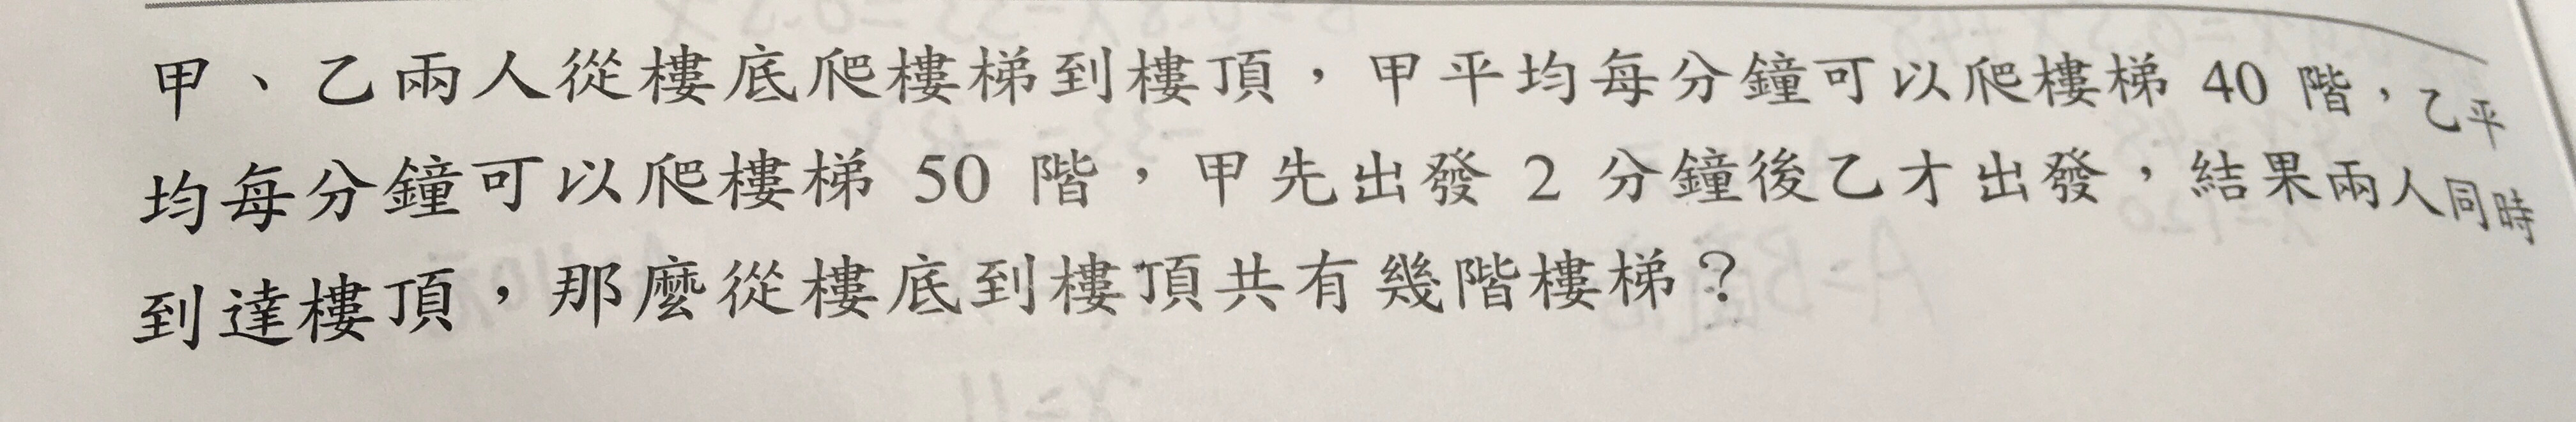 甲、乙兩人從樓底爬樓梯到樓頂，甲平均每分鐘可以爬樓梯 40 階，乙平
均每分鐘可以爬樓梯 50 階，甲先出發 2 分鐘後乙才出發，結果兩人同時
到達樓頂，那麼從樓底到樓頂共有幾階樓梯？